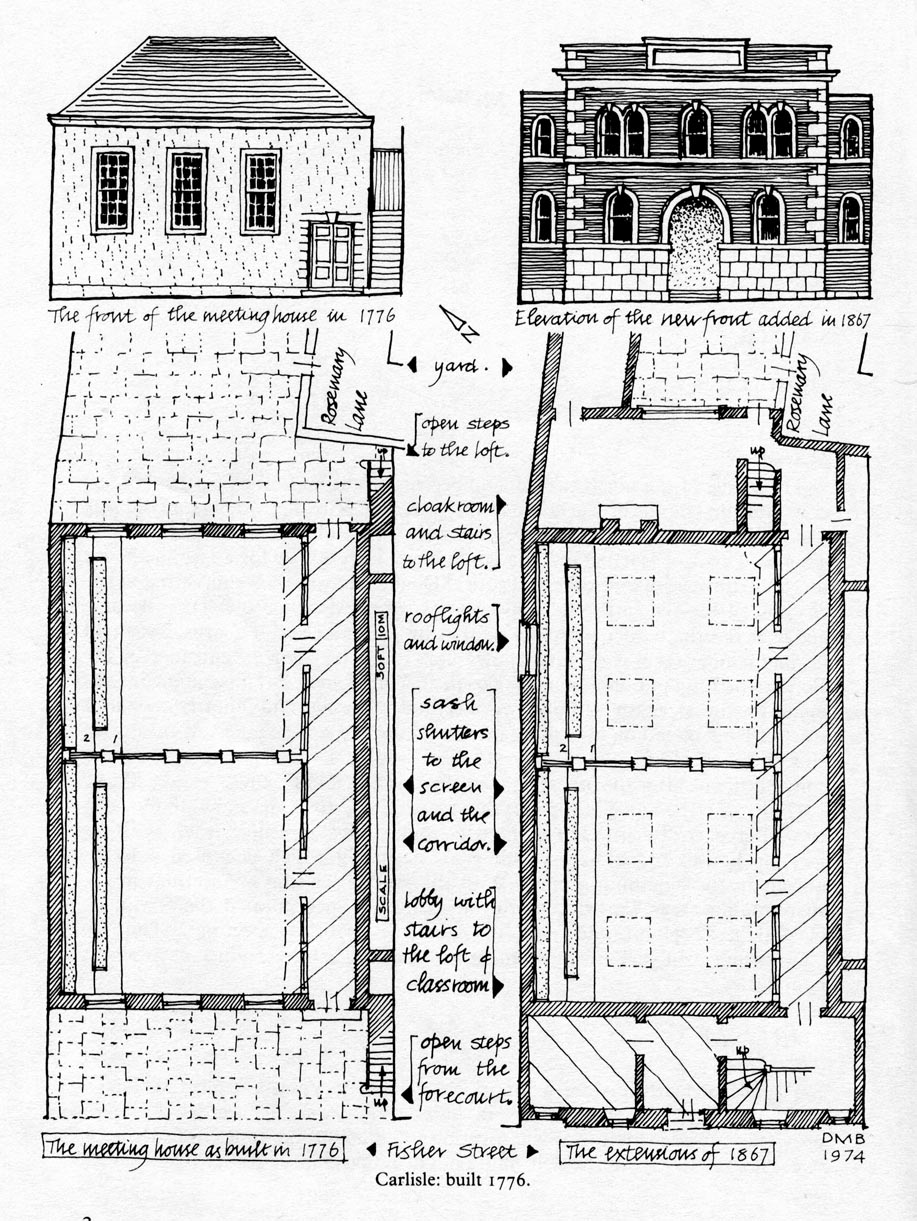 The front of the meeting house in 1776
Elevation of the new front added in 1867
yard.
Rosemary
Lane
Rosemary
Lane
open steps
to the loft.
up
up
cloakroom
and stairs
to the loft.
rooflights
and window.
50FT 10M
sash
shutters
to the
screen
and the
corridor.
2 1
2 1
SCALE
lobby with
stairs to
the loft &
classroom
open steps
from the
forecourt.
up
up
The meeting house as built in 1776
Fisher Street
The extensions of 1867
DMB
1974
Carlisle: built 1776.